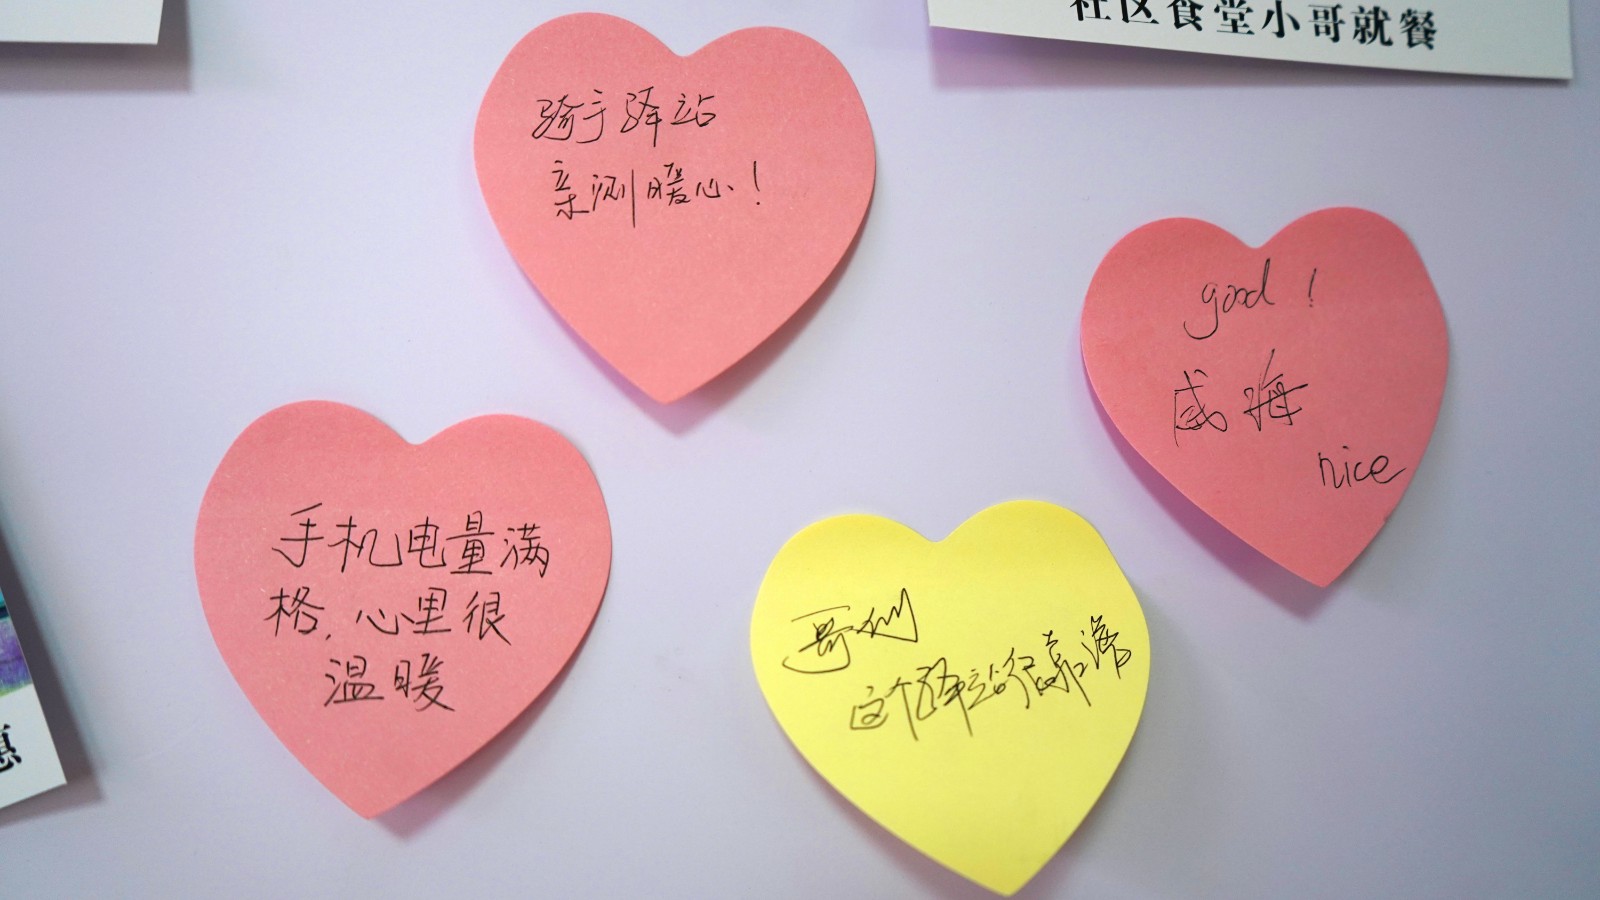 社区食堂小哥就餐
骑手驿站
亲测暖心！
good！
威海
nice
手机电量满
格，心里很
温暖
哥们
这个驿站很靠谱
惠